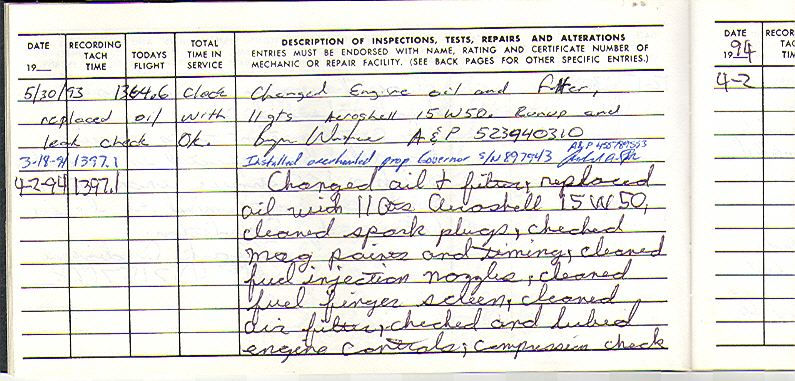 DATE
19__
RECORDING TACH TIME
TODAYS FLIGHT
TOTAL TIME IN SERVICE
DESCRIPTION OF INSPECTIONS, TESTS, REPAIRS AND ALTERATIONS
ENTRIES MUST BE ENDORSED WITH NAME, RATING AND CERTIFICATE NUMBER OF
MECHANIC OR REPAIR FACILITY. (SEE BACK PAGES FOR OTHER SPECIFIC ENTRIES.)
5/30/93 1364.6 Clock Changed Engine oil and filter,
replaced oil with 11 qts Aeroshell 15W50. Runup and
leak check OK. A&P 523940310
3-18-94 1397.1 Installed overhauled prop Governor S/N 897943
4-2-94 1397.1 Changed oil & filter, replaced
oil with 11 Qts Aeroshell 15W50,
cleaned spark plugs, checked
mag points and timing, cleaned
fuel injection nozzles, cleaned
fuel finger screen, cleaned
air filter, checked and lubed
engine controls, compression check
DATE
1994
RECOR
TAC
TIM
4-2